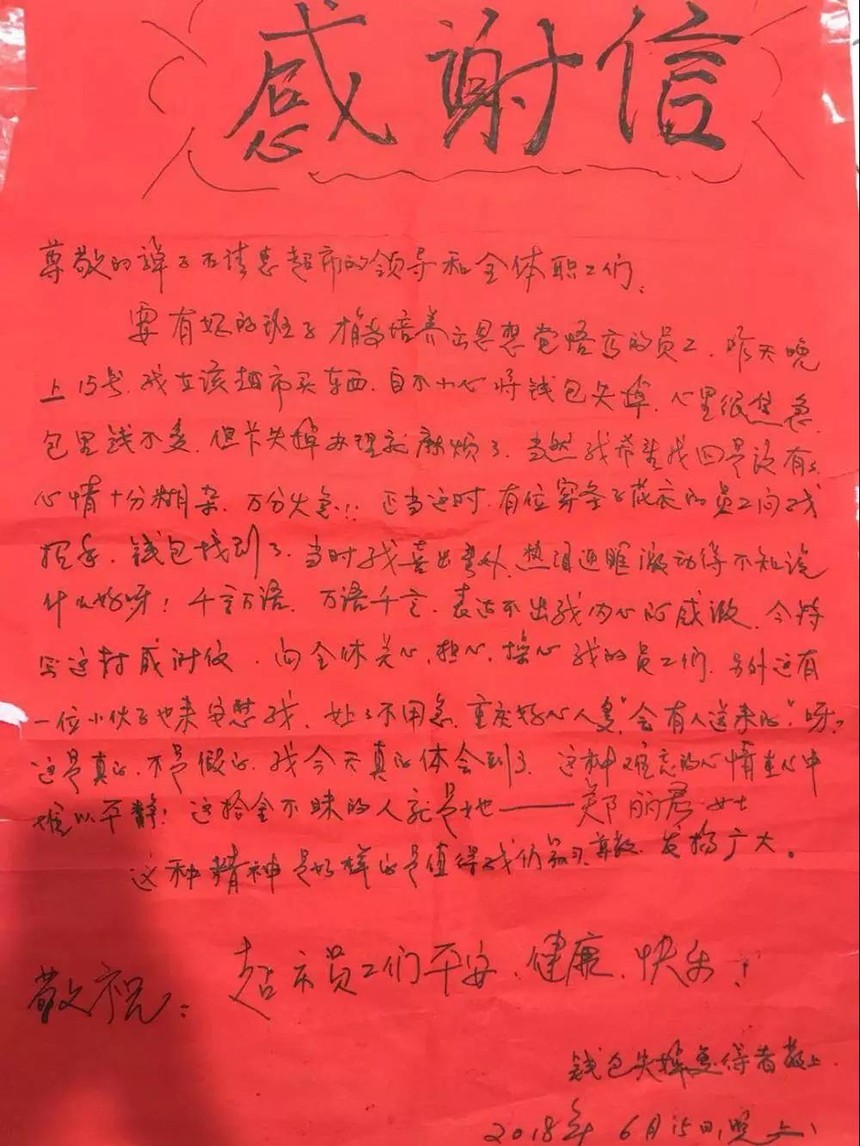 感谢信
尊敬的谭子石请惠超市的领导和全体职工们：
要有好的班子才能培养出思想觉悟高的员工，昨天晚
上15号，我在该超市买东西，自不小心将钱包失掉，心里很焦急，
包里钱不多，但卡失掉办理就麻烦了，当然我希望找回是没有了，
心情十分糊杂，万分火急!! 正当这时，有位穿条子花衣的员工向我
招手，钱包找到了，当时我喜出弯外，热泪迎眶激动得不知说
什么好呀！千言万语，万语千言，表达不出我内心的感激，今特
写这封感谢信，向全体关心、担心、操心我的员工们，另外还有
一位小伙子也来安慰我，处子不用急，重庆好心人多"会有人送来的"呀?
这是真的，不是假的，我今天真的体会到了，这种难忘的心情在心中
难以平静！这拾金不昧的人就是她——郑丽君女士
这种精神是好样的是值得我们学习、尊敬、发扬广大。
敬祝：超市员工们平安、健康、快乐！
钱包失掉急得者敬上
2018年6月15日晚上